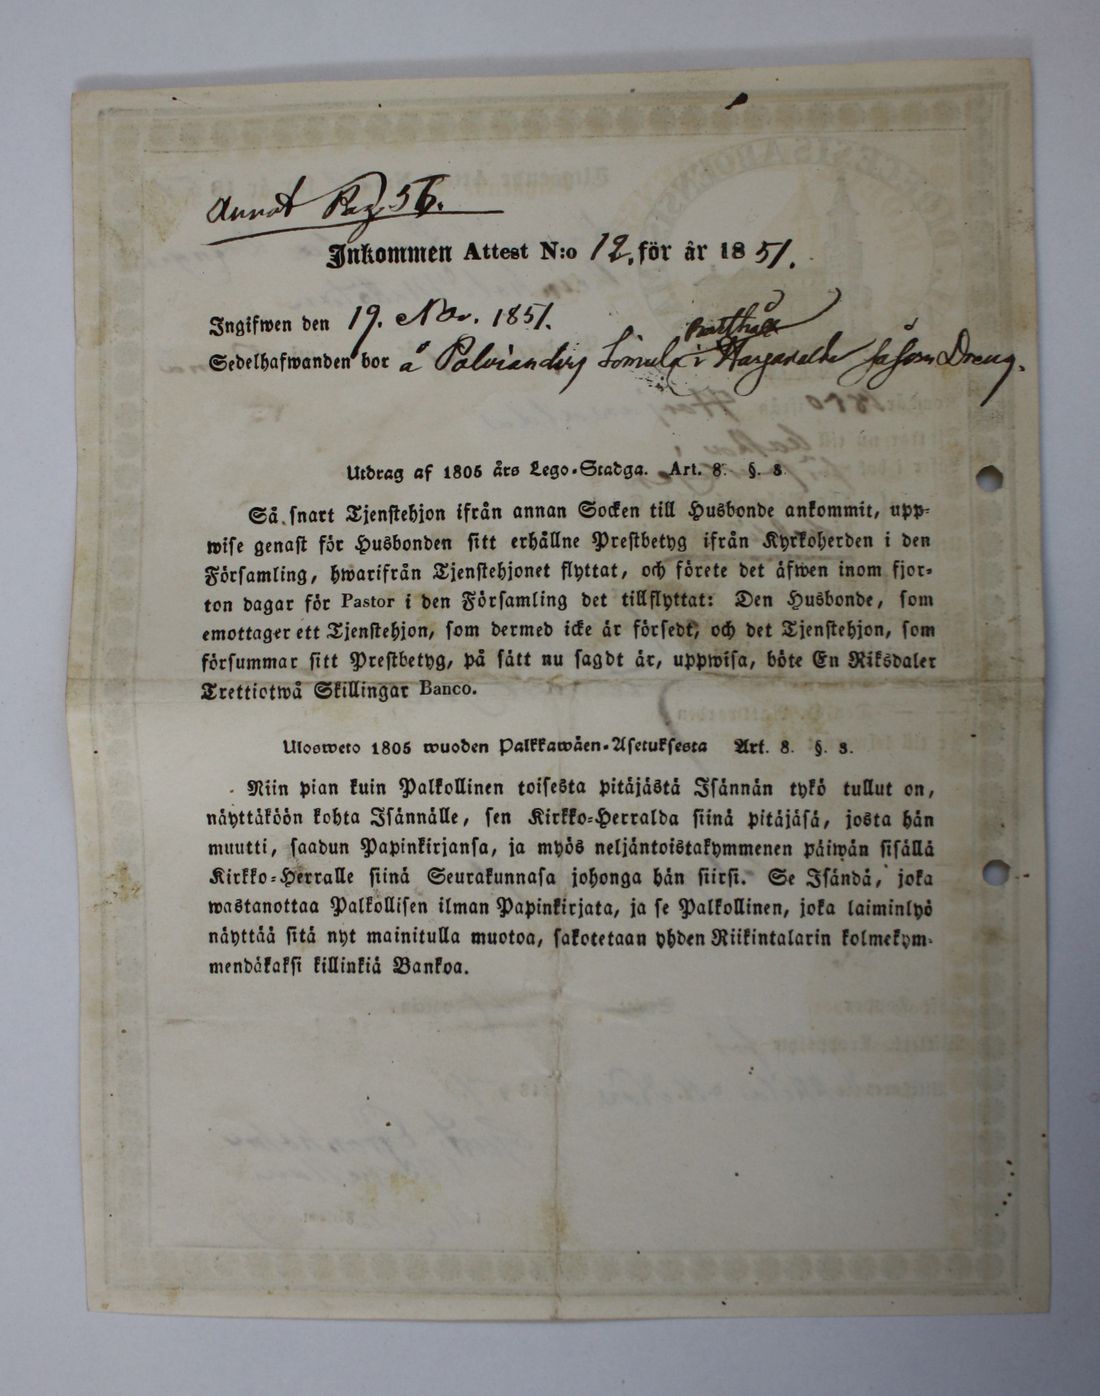 Annot Pag. 56.
Inkommen Attest N:o 12. för år 1851.
Ingifwen den 19. Nov. 1851.
Sedelhafwanden bor å såsom Dreng.
Utdrag af 1805 års Lego-Stadga. Art. 8. §. 3.
Så snart Tjenstehjon ifrån annan Socken till Husbonde ankommit, upp-
wise genast för Husbonden sitt erhållne Prestbetyg ifrån Kyrkoherden i den
Församling, hwarifrån Tjenstehjonet flyttat, och förete det äfwen inom fjor-
ton dagar för Pastor i den Församling det tillflyttat: Den Husbonde, som
emottager ett Tjenstehjon, som dermed icke är försedt, och det Tjenstehjon, som
försummar sitt Prestbetyg, på sätt nu sagdt är, uppwisa, böte En Riksdaler
Trettiotwå Skillingar Banco.
Ulosweto 1805 wuoden Palkkawäen-Asetuksesta Art. 8. §. 3.
Niin pian kuin Palkollinen toisesta pitäjästä Isännän tykö tullut on,
näyttäköön kohta Isännälle, sen Kirkko-Herralda siinä pitäjäsä, josta hän
muutti, saadun Papinkirjansa, ja myös neljäntoistakymmenen päiwän sisällä
Kirkko-Herralle siinä Seurakunnasa johonga hän siirsi. Se Isändä, joka
wastanottaa Palkollisen ilman Papinkirjata, ja se Palkollinen, joka laiminlyö
näyttää sitä nyt mainitulla muotoa, sakotetaan yhden Riikintalarin kolmekym-
mendäkaksi killinkiä Bankoa.